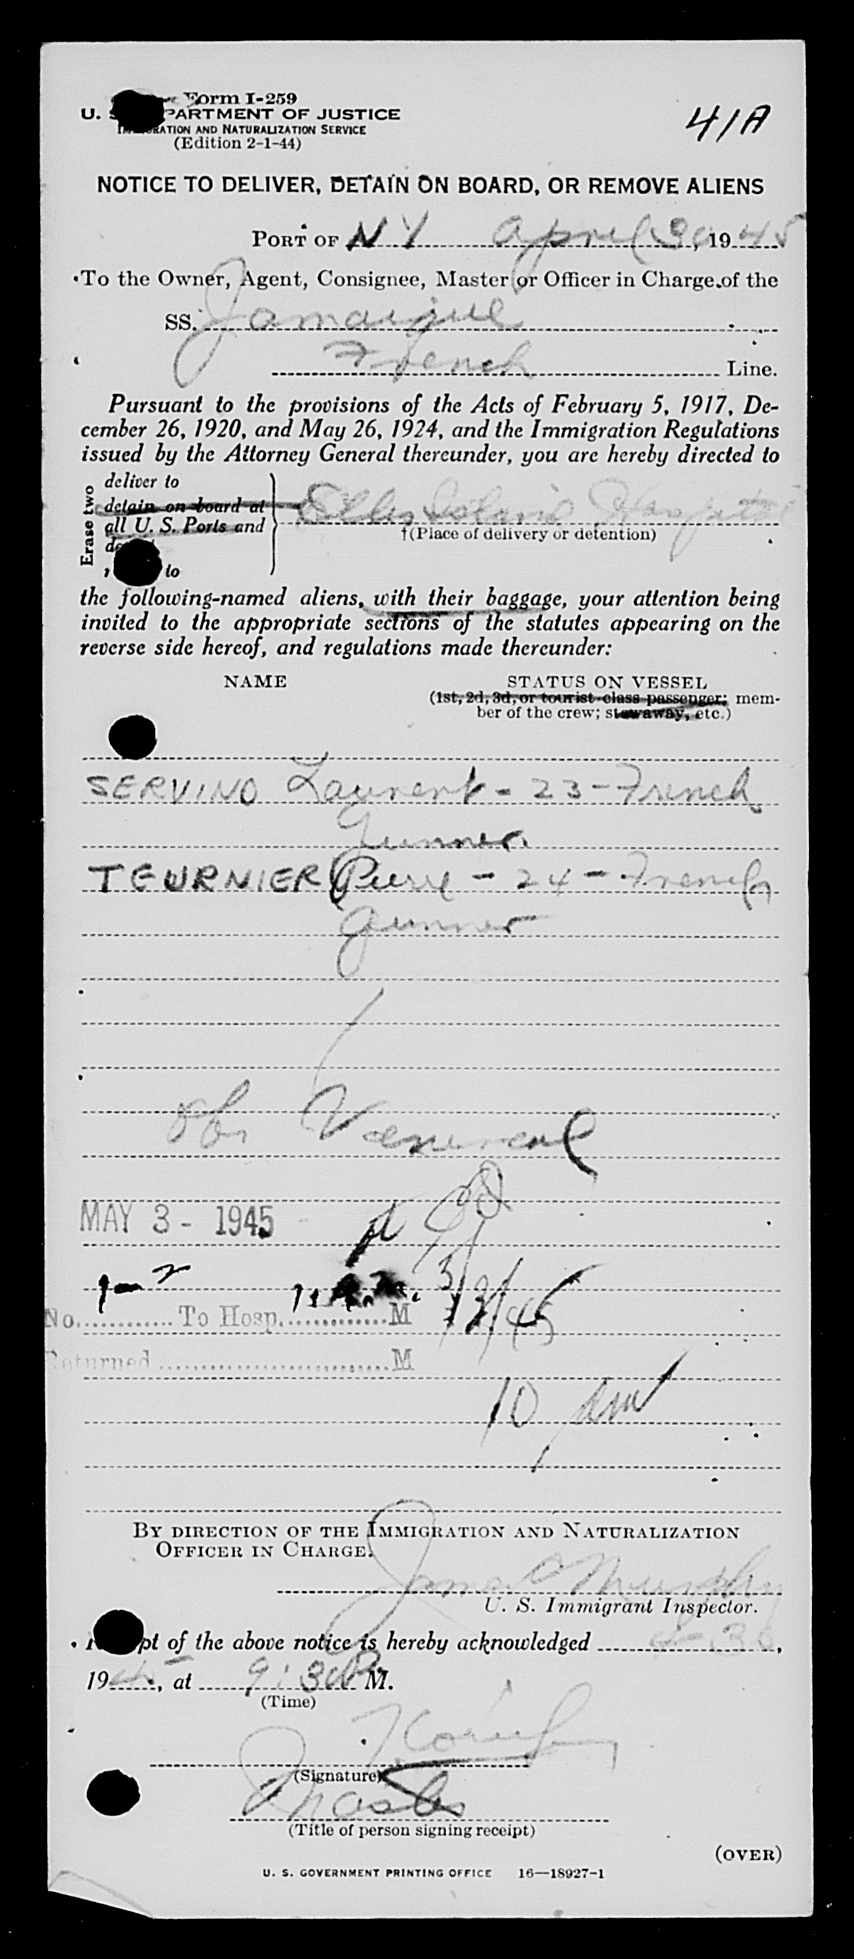 Form I-259
41A
U. S. DEPARTMENT OF JUSTICE
IMMIGRATION AND NATURALIZATION SERVICE
(Edition 2-1-44)
NOTICE TO DELIVER, DETAIN ON BOARD, OR REMOVE ALIENS
PORT OF N Y April 30, 1945
To the Owner, Agent, Consignee, Master or Officer in Charge of the
SS. Jamaique
French Line.
Pursuant to the provisions of the Acts of February 5, 1917, De-
cember 26, 1920, and May 26, 1924, and the Immigration Regulations
issued by the Attorney General thereunder, you are hereby directed to
Erase two
deliver to
detain on board at
all U. S. Ports and
Ellis Island Hospital
†(Place of delivery or detention)
to
the following-named aliens, with their baggage, your attention being
invited to the appropriate sections of the statutes appearing on the
reverse side hereof, and regulations made thereunder:
NAME STATUS ON VESSEL
(1st, 2d, 3d, or tourist-class passenger; mem-
ber of the crew; stowaway, etc.)
SERVINO Laurent - 23 - French
Gunner
TEURNIER Pierre - 24 - French
Gunner
Venereal
MAY 3 - 1945
No. To Hosp. M
5/3/45
Returned M
10 am
BY DIRECTION OF THE IMMIGRATION AND NATURALIZATION
OFFICER IN CHARGE.
Murphy
U. S. Immigrant Inspector.
Receipt of the above notice is hereby acknowledged 4-30,
1945, at 9:30 P M.
(Time)
(Signature)
Master
(Title of person signing receipt)
(OVER)
U. S. GOVERNMENT PRINTING OFFICE 16—18927-1